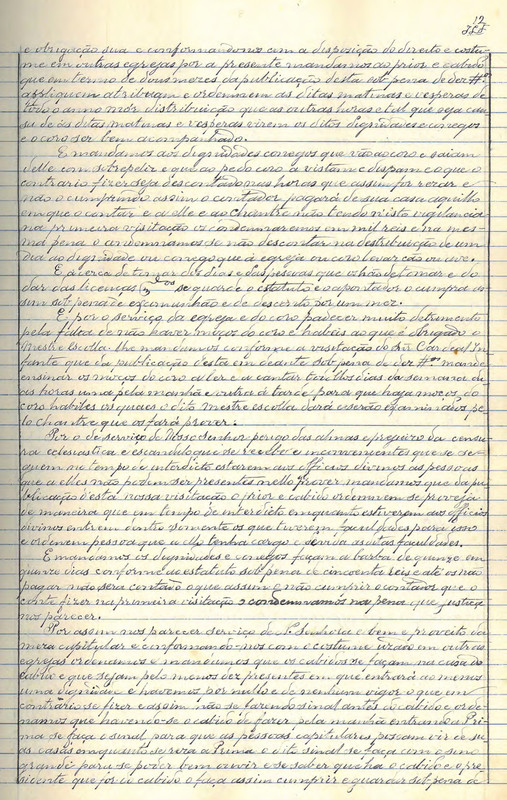 12
e obrigação sua e conformandonos com a disposição do direito e costu-
me em outras egrejas por a presente mandamos ao prior e cabido
que em termo de dous mezes da publicação desta sob pena de dez
appliquem atribuam e ordennem as ditas matinas e vesperas de
todo o anno mór distribuição que as outras horas e tal que seja cau-
sa de ás ditas matinas e vesperas virem os ditos dignidades e conegos
e o coro ser bem acompanhado.
E mandamos aos dignidades conegos que vão ao coro e saiam
delle com sobrepeliz e que ao pé do coro a vistam e dispam e o que o
contrario fizer seja descontado nas horas que assim for rezar e
não o cumprindo assim o contador pagará de sua casa aquillo
em que o contar e a elle e ao chantre não tendo nisto vigilancia
na primeira visitação os condemnaremos em mil reis e na mes-
ma pena o condemnâmos se não descontar na destribuição de um
dia ao dignidade ou conego que á egreja ou coro levar cão ou ave.
E ácerca de tomar dos dias e das pescoas que se hão de tomar e do
dar das licenças se guarde o estatuto e o apontador o cumpra as-
sim sob pena de excomunhão e de descerto por um mez.
E por o serviço da egreja e do coro padecer muito detremento
pela falta de não haver môços do coro e habeis ao que é obrigado o
Mestre Escolla lhe mandamos conforme a visetação do Snr Cardeal In-
fante que da publicação d'esta em deante sob pena de dez mande
ensinar os moços do coro a ler e a cantar todos os dias da semana du-
as horas uma pela manhã e outra á tarde para que haja moços do
coro habiles os quaes o dito mestre escolla dará e serão examinados pe-
lo chantre que os fará prover.
Por o de serviço de Nosso Senhor perigo das almas e prejuizo da censu-
ra eclesiastica e escandulo que se recebe e inconvenientes que se se-
guem no tempo de interdicto estarem aos officios divinos as pessoas
que a elles não podem ser presentes nello prover mandamos que da pu-
blicação d'esta nossa visitação o prior e cabido ordennem se proveja
de maneira que em tempo de interdicto emquanto estiverem aos officios
divinos entrem dentro somente os que tiverem faculdades para isso
e ordenem pessoa que a ella tenha cargo e de viva as ditas faculdades.
E mandamos os dignidades e conegos façam a barba de quinze em
quinze dias conforme ao estatuto sob pena de cincoenta reis e até os não
pagar não será contado o que assim o não cumprir o contador que o
conto fizer na primeira visitação o condemnâmos na pena que justiça
nos parecer.
Por assim nos parecer serviço de N. Senhora e bem e proveito da
meza capitular e conformando-nos com o costume usado em outras
egrejas ordenamos e mandamos que os cabidos se façam na casa do
cabido e que sejam pelo menos dez presentes em que entrará ao menos
uma dignidade e havemos por nullo e de nenhum vigor o que em
contrario se fizer e assim não se fazendo sinal antes do cabido e orde-
namos que havendo-se o cabido de fazer pela manhã entrando a Pri-
ma se faça o sinal para que as pessoas capitulares possam vir de su-
as casas emquanto se reza a Prima e o dito sinal se faça com o sino
grande para se poder bem ouvir e se saber que ha o cabido e o pre-
sidente que fôr do cabido o faça assim cumprir e guardar sob pena de